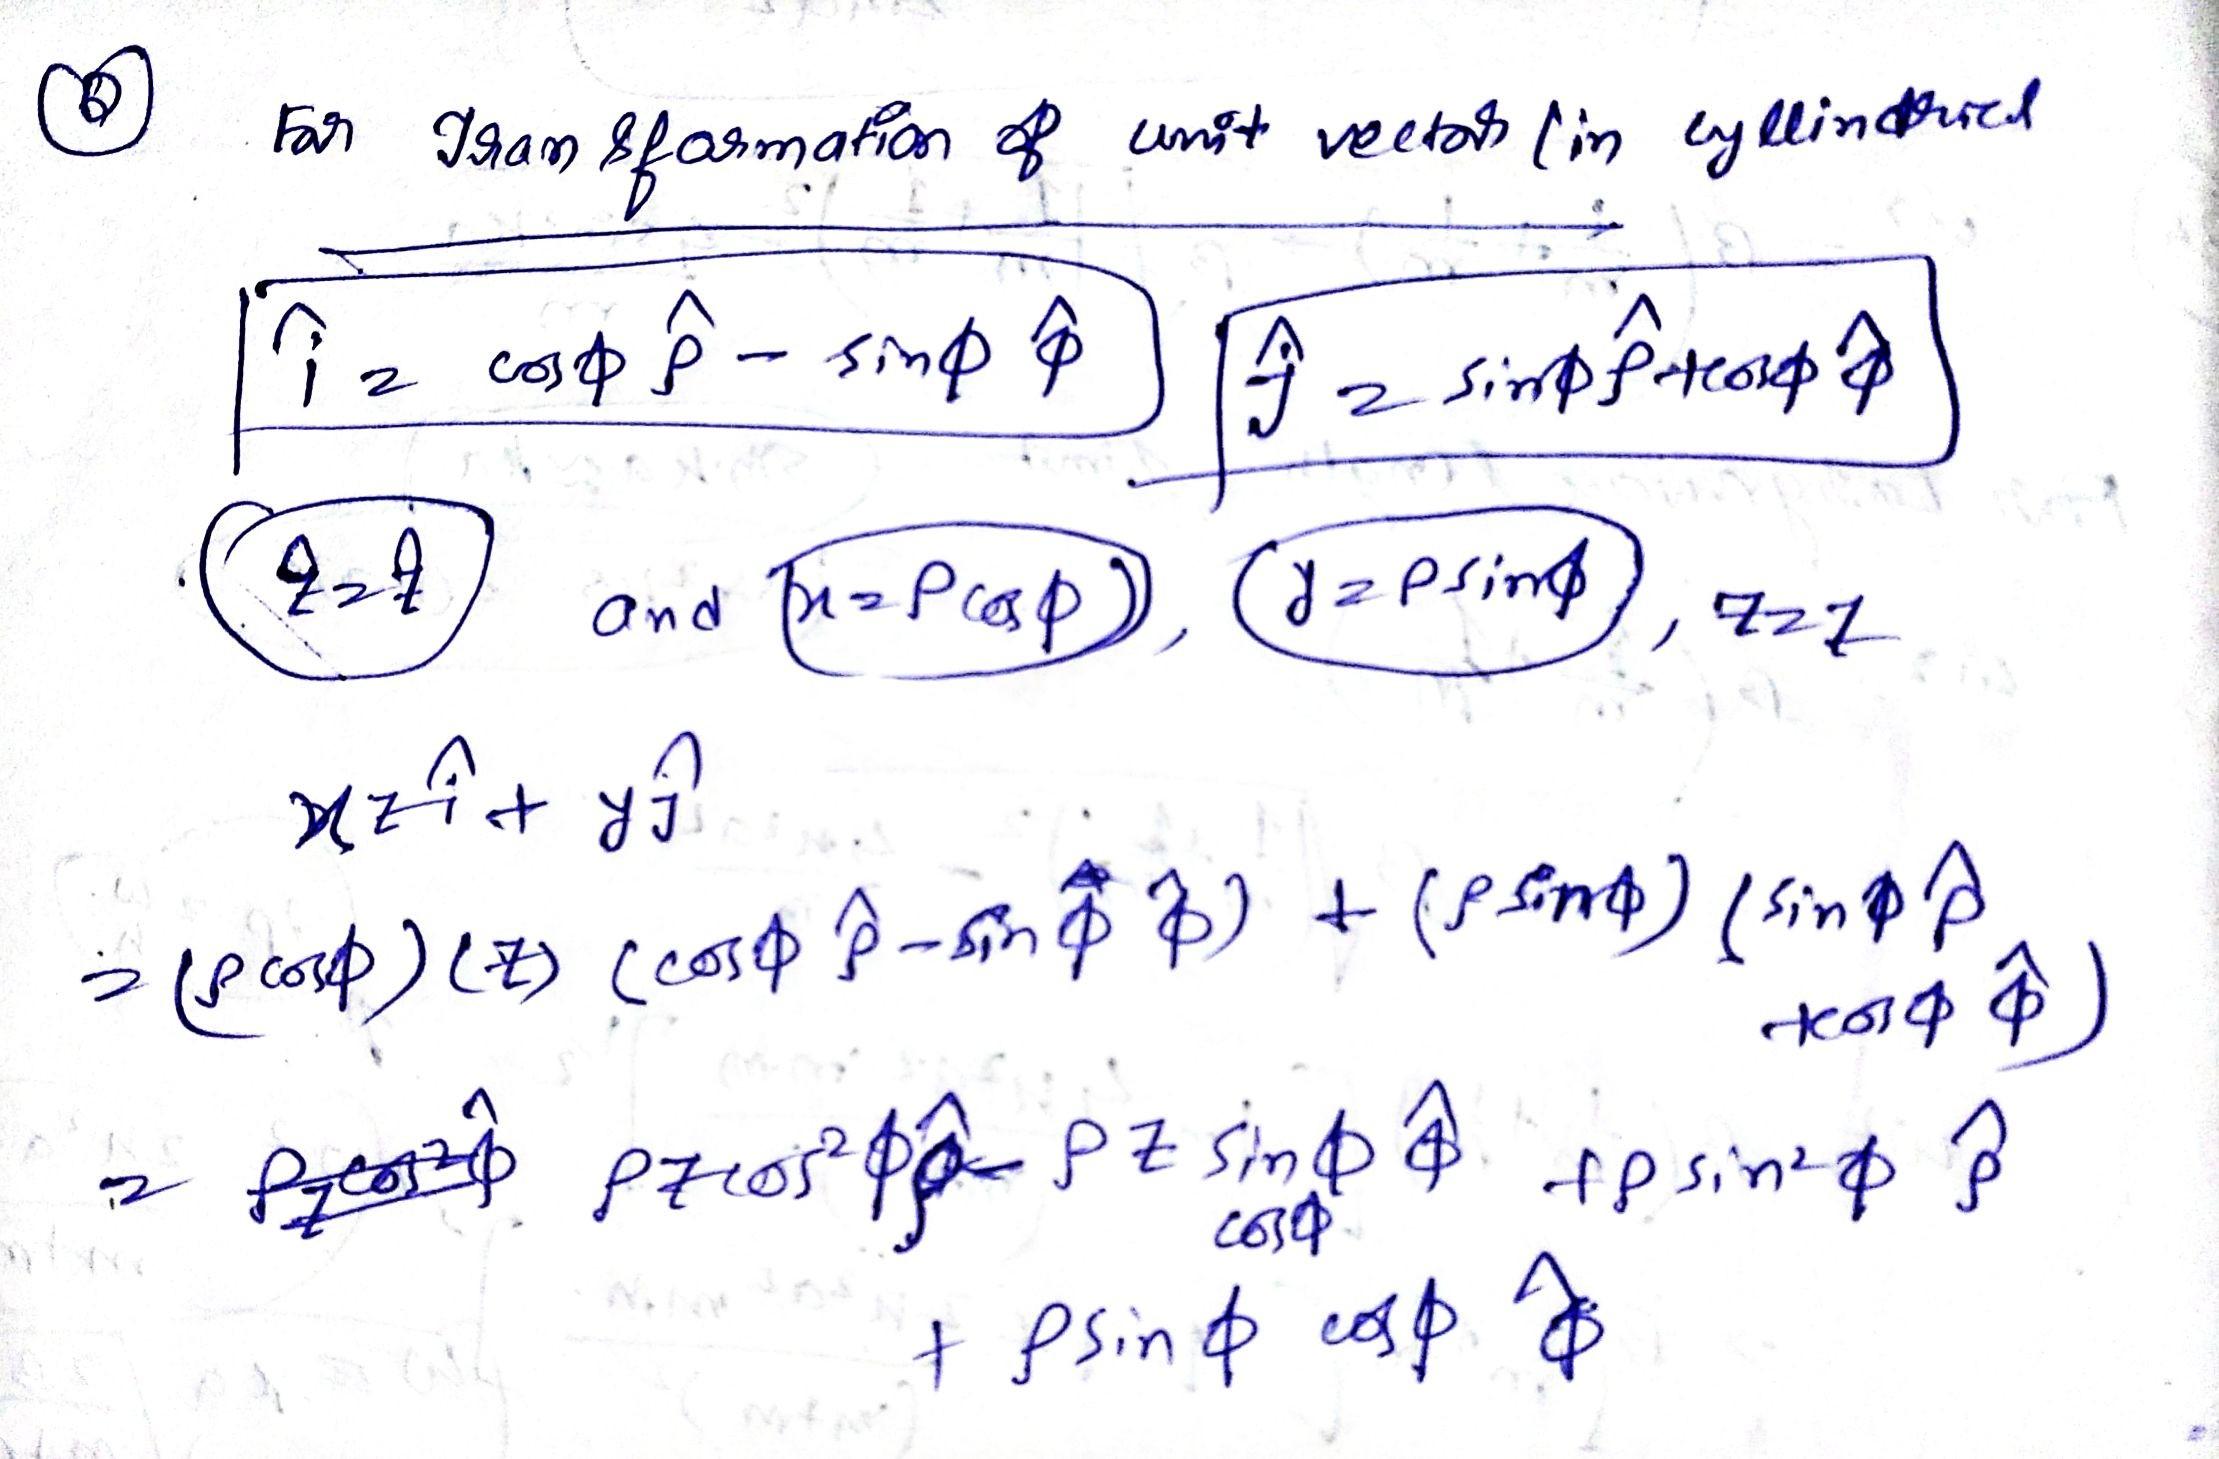 ⑥ For Transformation of unit vector (in cyllindrical
î = cosϕ ρ̂ - sinϕ ϕ̂ ĵ = sinϕ ρ̂ + cosϕ ϕ̂
ẑ = ẑ and (x = ρcosϕ), (y = ρsinϕ), z = z
xzî + yĵ
= (ρcosϕ) (z) (cosϕ ρ̂ - sinϕ ϕ̂) + (ρsinϕ) (sinϕ ρ̂
+cosϕ ϕ̂)
= ρzcos²ϕρ̂ - ρz sinϕ ϕ̂ + ρsin²ϕ ρ̂
cosϕ
+ ρsinϕ cosϕ ϕ̂